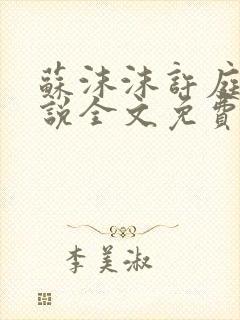 蘇沫沫許庭
說全文免費
李美淑